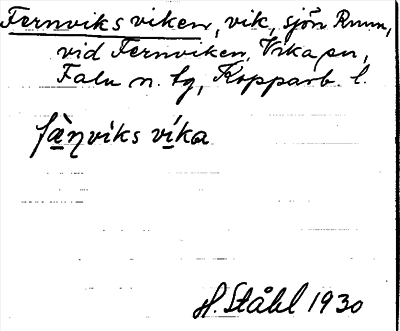 Fernviksviken, vik, sjön Runn,
vid Fernviken, Vika sn,
Falu n. tg, Kopparb. l.
fàηviks vika
H. Ståhl 1930